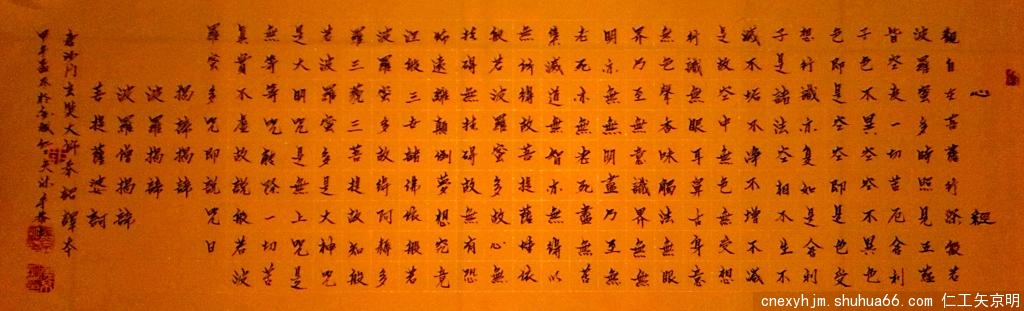 心經
觀自在菩薩行深般若
波羅蜜多時照見五蘊
皆空度一切苦厄舍利
子色不異空空不異色
色即是空空即是色受
想行識亦復如是舍利
子是諸法空相不生不
滅不垢不淨不增不減
是故空中無色無受想
行識無眼耳鼻舌身意
無色聲香味觸法無眼
界乃至無意識界無無
明亦無無明盡乃至無
老死亦無老死盡無苦
集滅道無智亦無得以
無所得故菩提薩埵依
般若波羅蜜多故心無
挂礙無挂礙故無有恐
怖遠離顛倒夢想究竟
涅槃三世諸佛依般若
波羅蜜多故得阿耨多
羅三藐三菩提故知般
若波羅蜜多是大神咒
是大明咒是無上咒是
無等等咒能除一切苦
真實不虛故說般若波
羅蜜多咒即說咒曰
揭諦揭諦
波羅揭諦
波羅僧揭諦
菩提薩婆訶
唐沙門玄奘大師奉詔譯本
甲午孟冬於
cnexyhjm.shuhua66.com 仁工矢京明